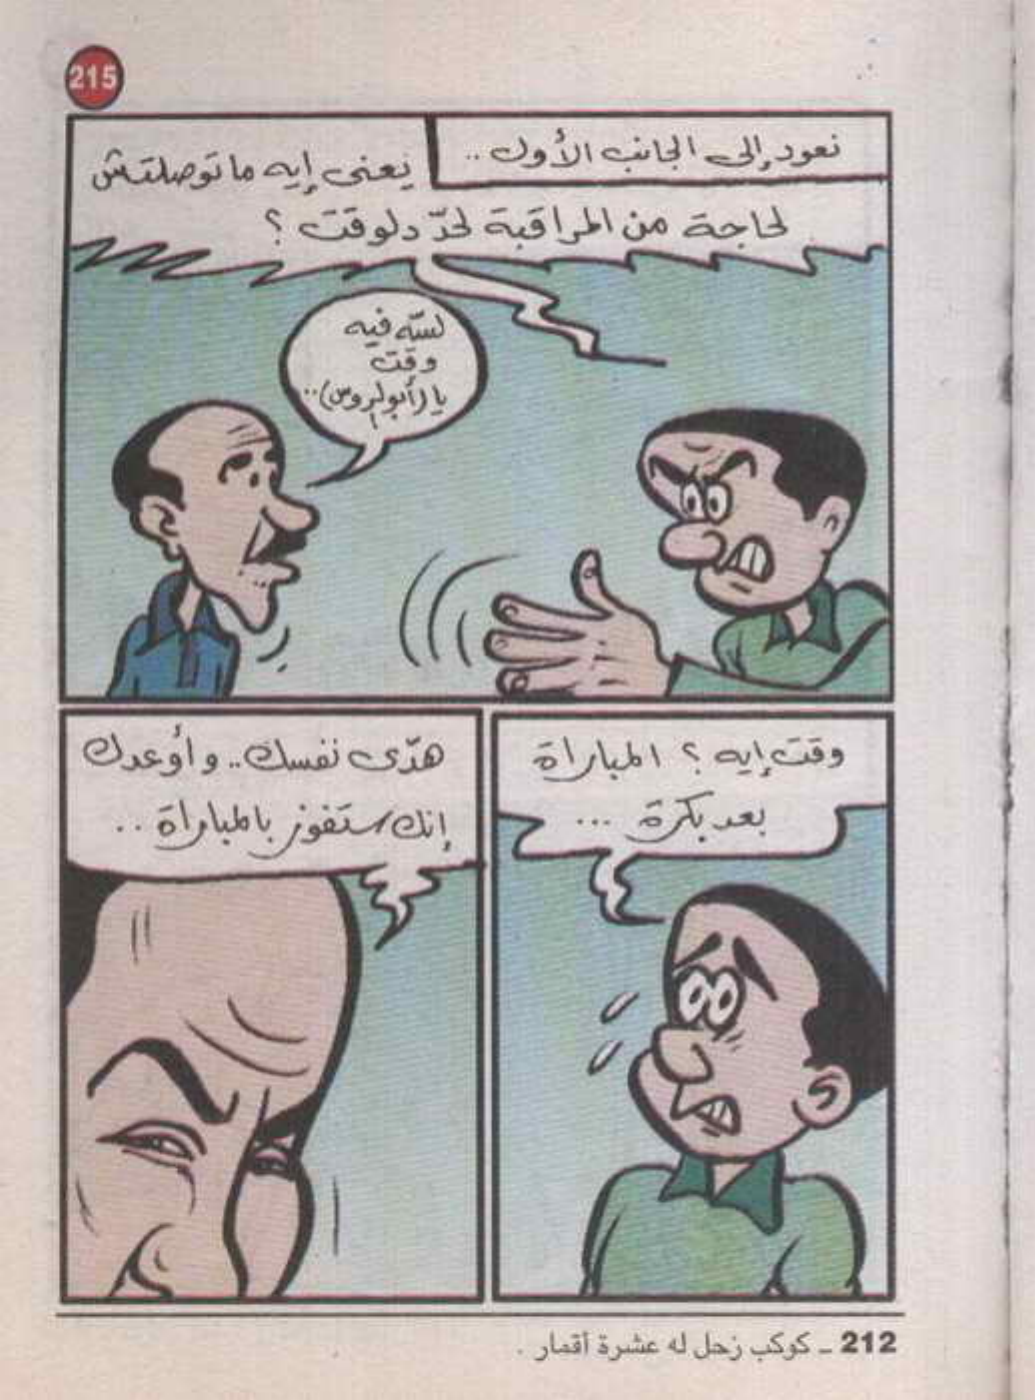 215
نعود إلى الجانب الأول ..
يعنى إيه ما توصلتش
لحاجة من المراقبة لحدّ دلوقت ؟
لسّه فيه
وقت
يا (أبو لروس)..
وقت إيه ؟ المباراة
بعد بكرة ...
هدّى نفسك .. وأوعدك
إنك ستفوز بالمباراة ..
212 ـ كوكب زحل له عشرة أقمار .